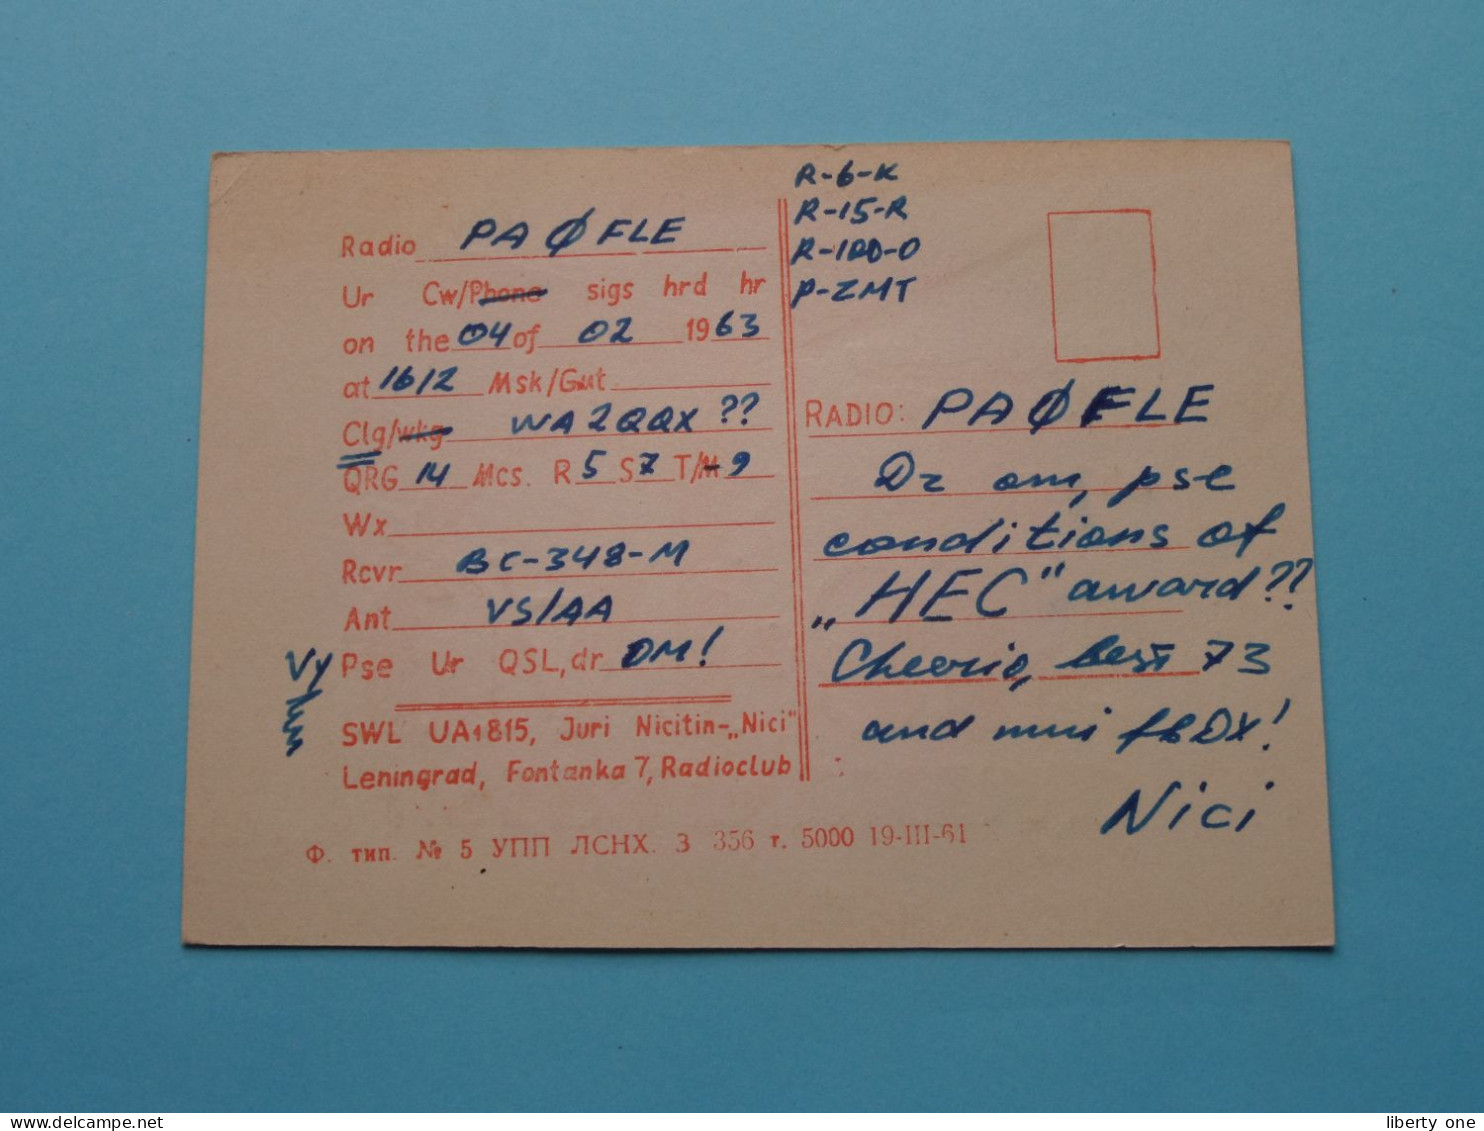 Radio PAØFLE
Ur Cw/Phone sigs hrd hr
on the 04 of 02 1963
at 1612 Msk/Gmt
Clg/wkg WA2QQX ??
QRG 14 Mcs. R 5 S 7 T/M-9
Wx
Rcvr BC-348-M
Ant VS1AA
Vy Pse Ur QSL, dr OM!
SWL UA1815, Juri Nicitin-„Nici"
Leningrad, Fontanka 7, Radioclub
R-6-K
R-15-R
R-100-O
P-ZMT
RADIO: PAØFLE
Dr om, pse
conditions of
„HEC" award??
Cheerio, best 73
and mni fb DX!
Nici
Ф. тип. № 5 УПП ЛСНХ. З 356 т. 5000 19-III-61
liberty one